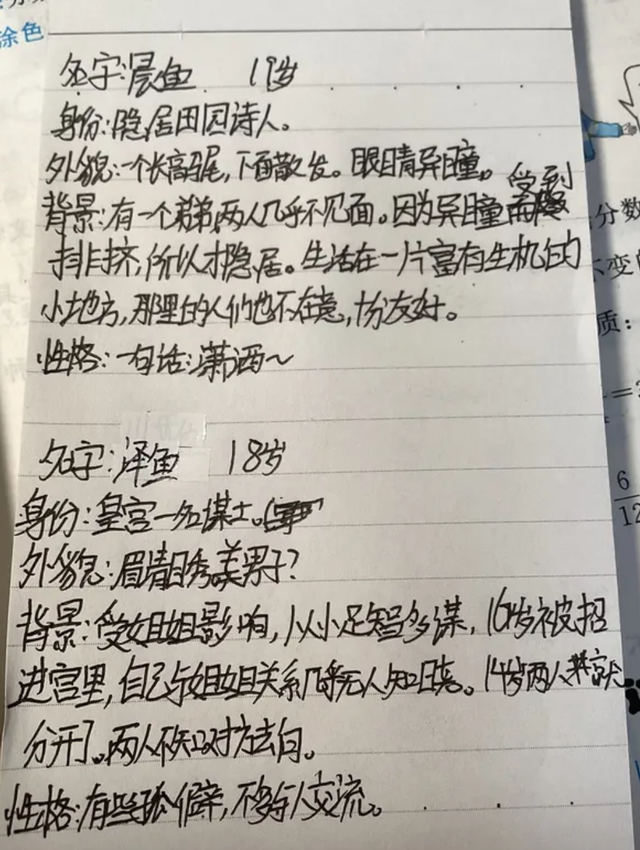 涂色
名字:晨鱼 19岁
身份:隐居田园诗人。
外貌:一个长高马尾,下面散发。眼睛异瞳。
背景:有一个亲弟,两人几乎不见面。因为异瞳受到
排挤,所以才隐居。生活在一片富有生机的
小地方,那里的人们也不在意,十分友好。
性格:一句话:潇洒~
名字:泽鱼 18岁
身份:皇宫一名谋士。
外貌:眉清目秀美男子?
背景:受姐姐影响,从小足智多谋,16岁被招
进宫里,自己与姐姐关系几乎无人知晓。14岁两人
分开了。两人不知对方去向。
性格:有些孤僻,不多与人交流。
分数
不变的
质:
6
12